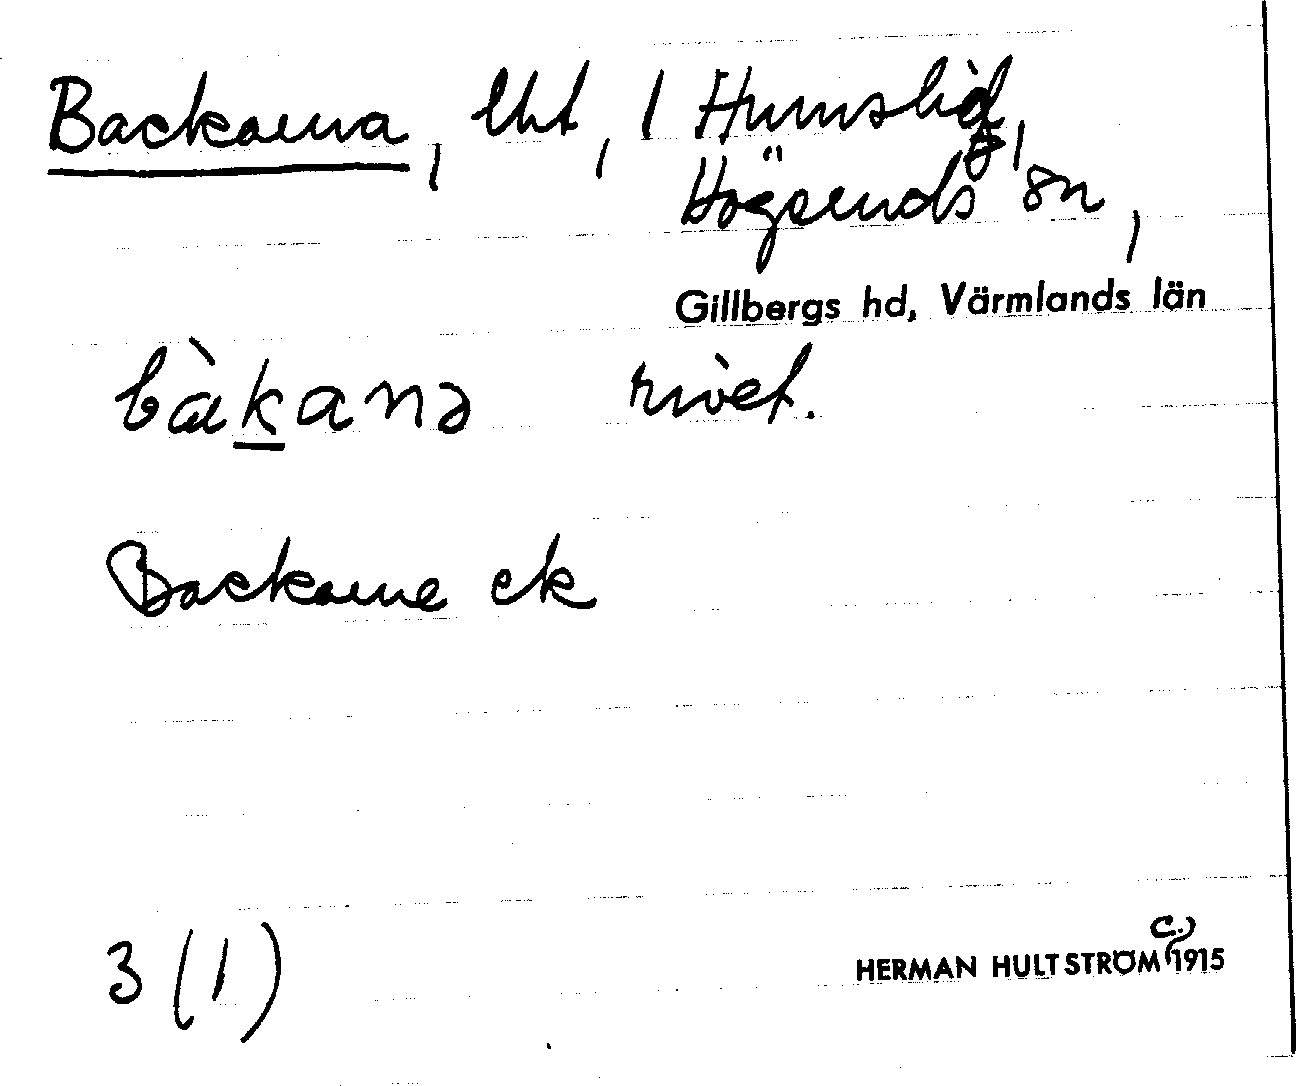 Backarna, lht, 1 Humslid,
Högseruds sn,
Gillbergs hd, Värmlands län
bàkanə nivet.
Backarne ek
3 (1)
HERMAN HULTSTRÖM (c.) 1915